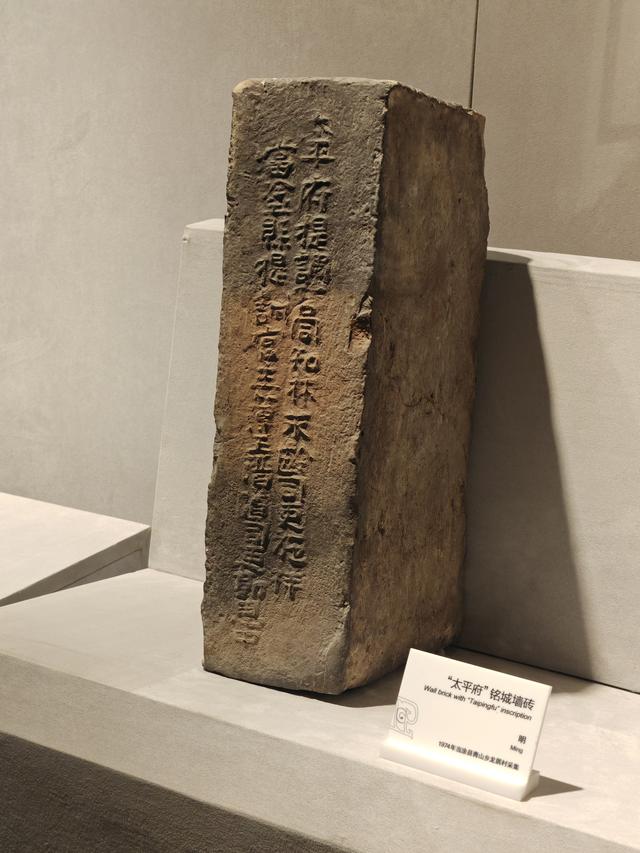 太平府提調官知林不司吏作
當塗縣提調官主簿王司吏
“太平府”铭城墙砖
Wall brick with "Taipingfu" inscription
明
Ming
1974年当涂县青山乡龙居村采集